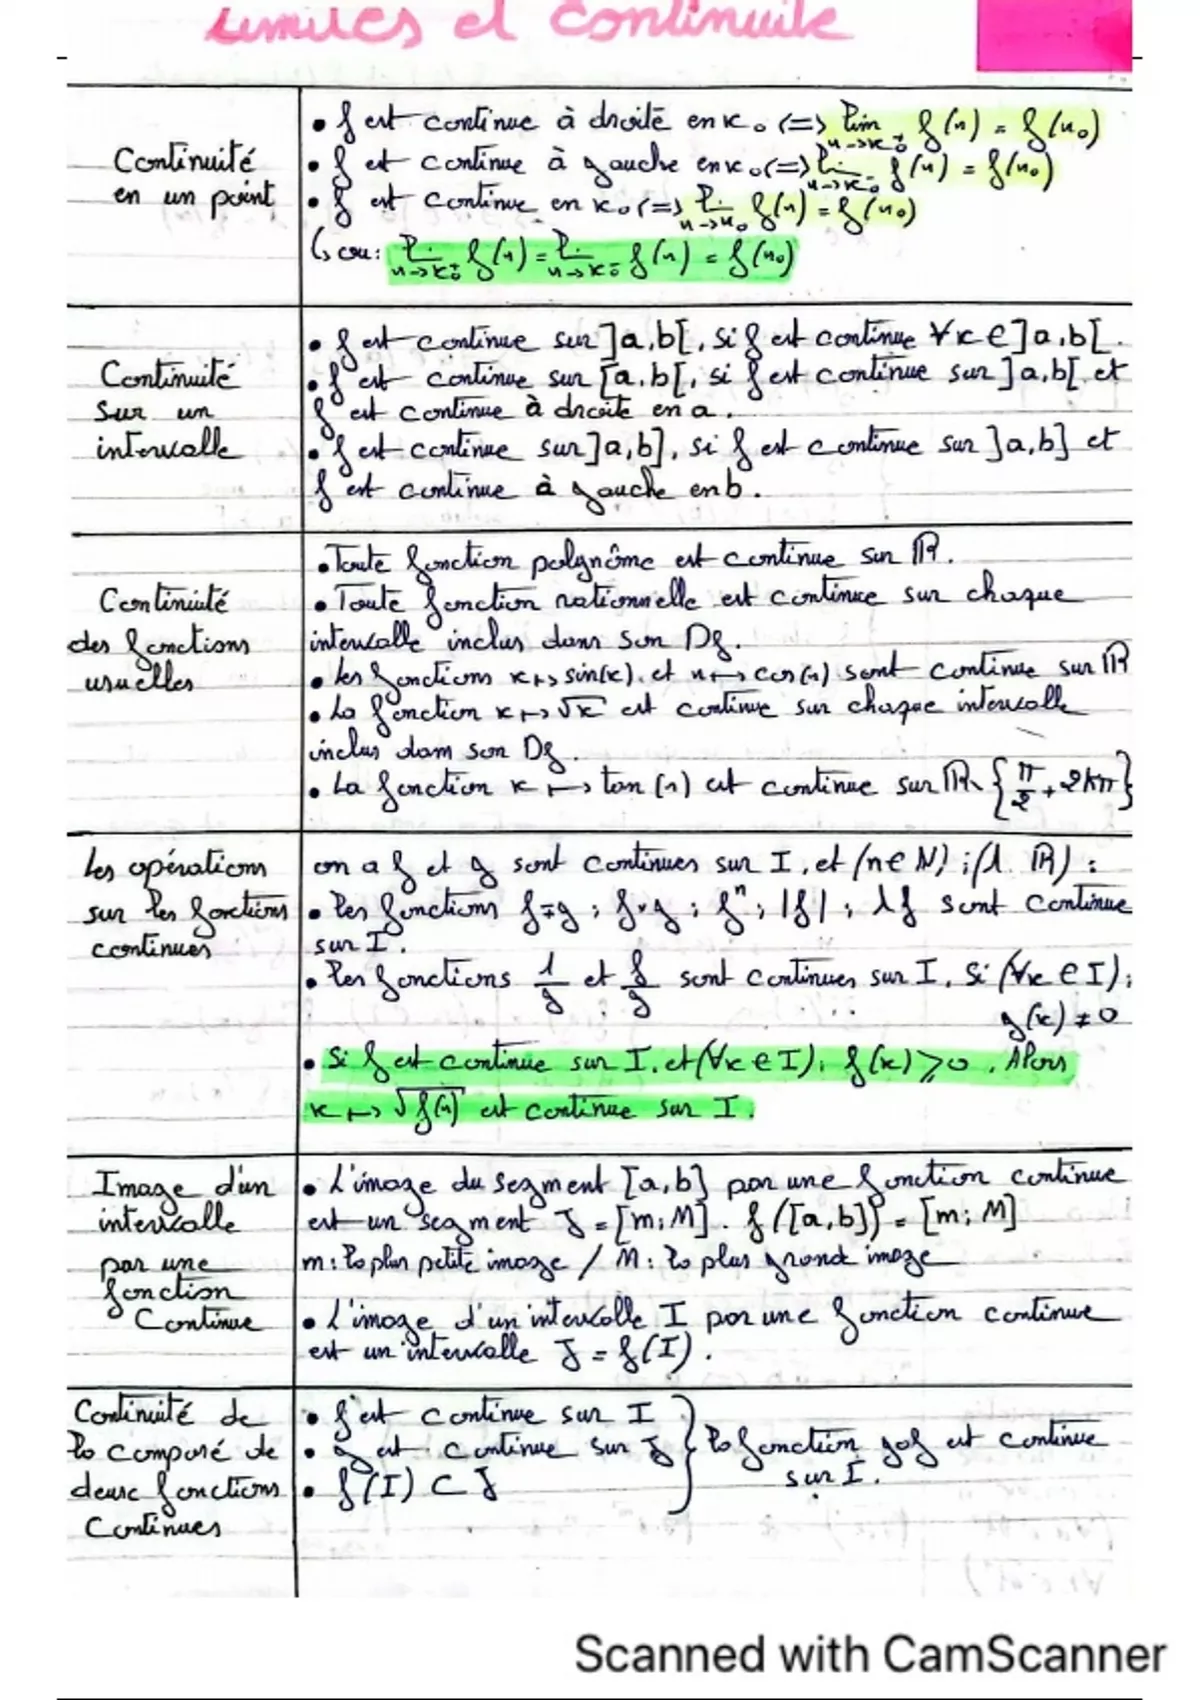 Limites et Continuité
Continuité
en un point
• f est continue à droite en x₀ <=> lim x->x₀⁺ f(x) = f(x₀)
• f est continue à gauche en x₀ <=> lim x->x₀⁻ f(x) = f(x₀)
• f est continue en x₀ <=> lim x->x₀ f(x) = f(x₀)
↳ ou : lim x->x₀⁺ f(x) = lim x->x₀⁻ f(x) = f(x₀)
Continuité
sur un
intervalle
• f est continue sur ]a,b[, si f est continue ∀x∈]a,b[.
• f est continue sur [a,b[, si f est continue sur ]a,b[ et
f est continue à droite en a.
• f est continue sur ]a,b], si f est continue sur ]a,b] et
f est continue à gauche en b.
Continuité
des fonctions
usuelles
• Toute fonction polynôme est continue sur ℝ.
• Toute fonction rationnelle est continue sur chaque
intervalle inclus dans son Df.
• Les fonctions x↦sin(x) et x↦cos(x) sont continue sur ℝ
• La fonction x↦√x est continue sur chaque intervalle
inclus dans son Df.
• La fonction x↦tan(x) est continue sur ℝ\{π/2 + 2kπ}
Les opérations
sur les fonctions
continues
on a f et g sont continues sur I, et (n∈ℕ) ; (λ ℝ) :
• Les fonctions f∓g ; f×g ; fⁿ ; |f| ; λf sont continue
sur I.
• Les fonctions 1/g et f/g sont continues sur I, si (∀x∈I) ;
g(x) ≠ 0
• Si f est continue sur I, et (∀x∈I) ; f(x) ⩾ 0. Alors
x↦√f(x) est continue sur I.
Image d'un
intervalle
par une
fonction
Continue
• L'image du segment [a,b] par une fonction continue
est un segment J = [m;M]. f([a,b]) = [m;M]
m : la plus petite image / M : la plus grand image
• L'image d'un intervalle I par une fonction continue
est un intervalle J = f(I).
Continuité de
la composé de
deux fonctions
Continues
• f est continue sur I
• g est continue sur J
• f(I) ⊂ J
} la fonction gof est continue
sur I.
Scanned with CamScanner